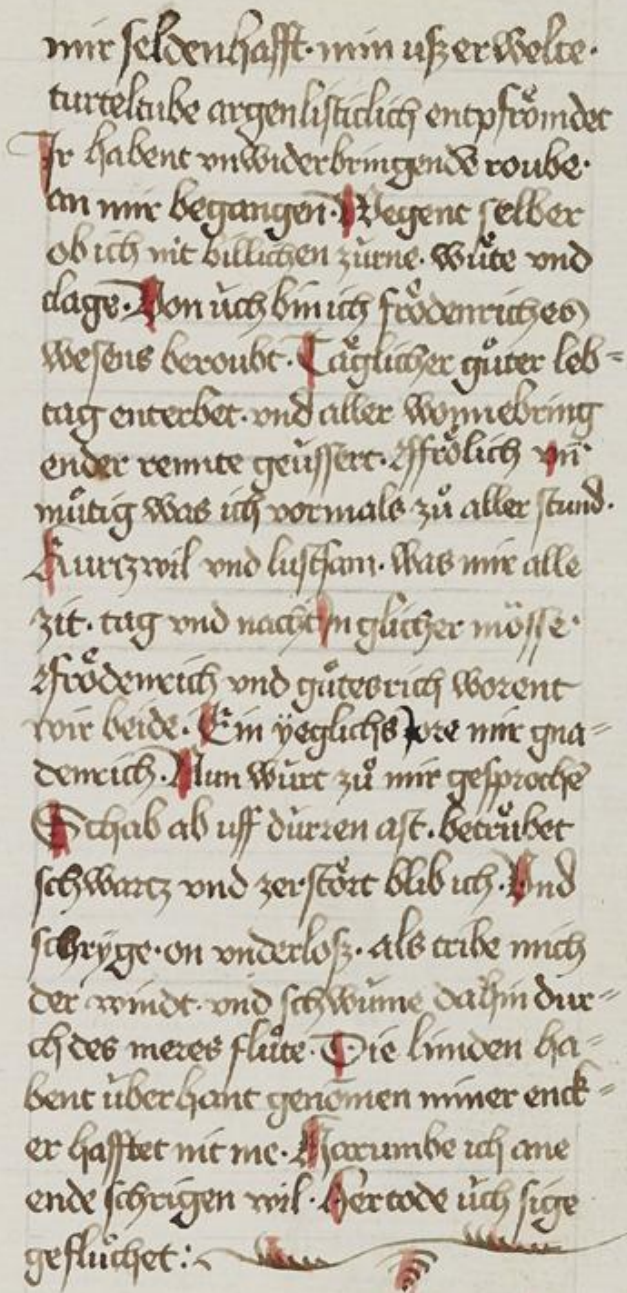 mir seldenhafft · min uszerwelte ·
turteltube argenlisticlich entpfrömdet
Ir habent vnwiderbringende roube ·
an mir begangen · Wegent selber
ob ich nit billichen zürne · wüte vnd
clage · Von üch bin ich frödenriches
wesens beroubt · Täglicher güter leb=
tag enterbet · vnd aller wonnebring
ender rennte geüssert · Frölich vn̄
mütig was ich vormals zů aller stund ·
Kurtzwil vnd lustsam · was mir alle
zit · tag vnd nacht In glicher mösse ·
Frödenrich vnd gůtesrich worent
wir beide · Ein yeglichs jore mir gna=
denrich · Nun würt zů mir gesprochē
Schab ab uff dürren ast · betrübet
schwartz vnd zerstört blib ich · Vnd
schryge · on vnderlosz · als tribe mich
der windt · vnd schwüme dahin dur=
ch des meres flůte · Die linden ha=
bent überhant genōmen miner enck=
er hafftet nit me · Harumbe ich ane
ende schrigen wil · Her tode üch sige
geflůchet :~